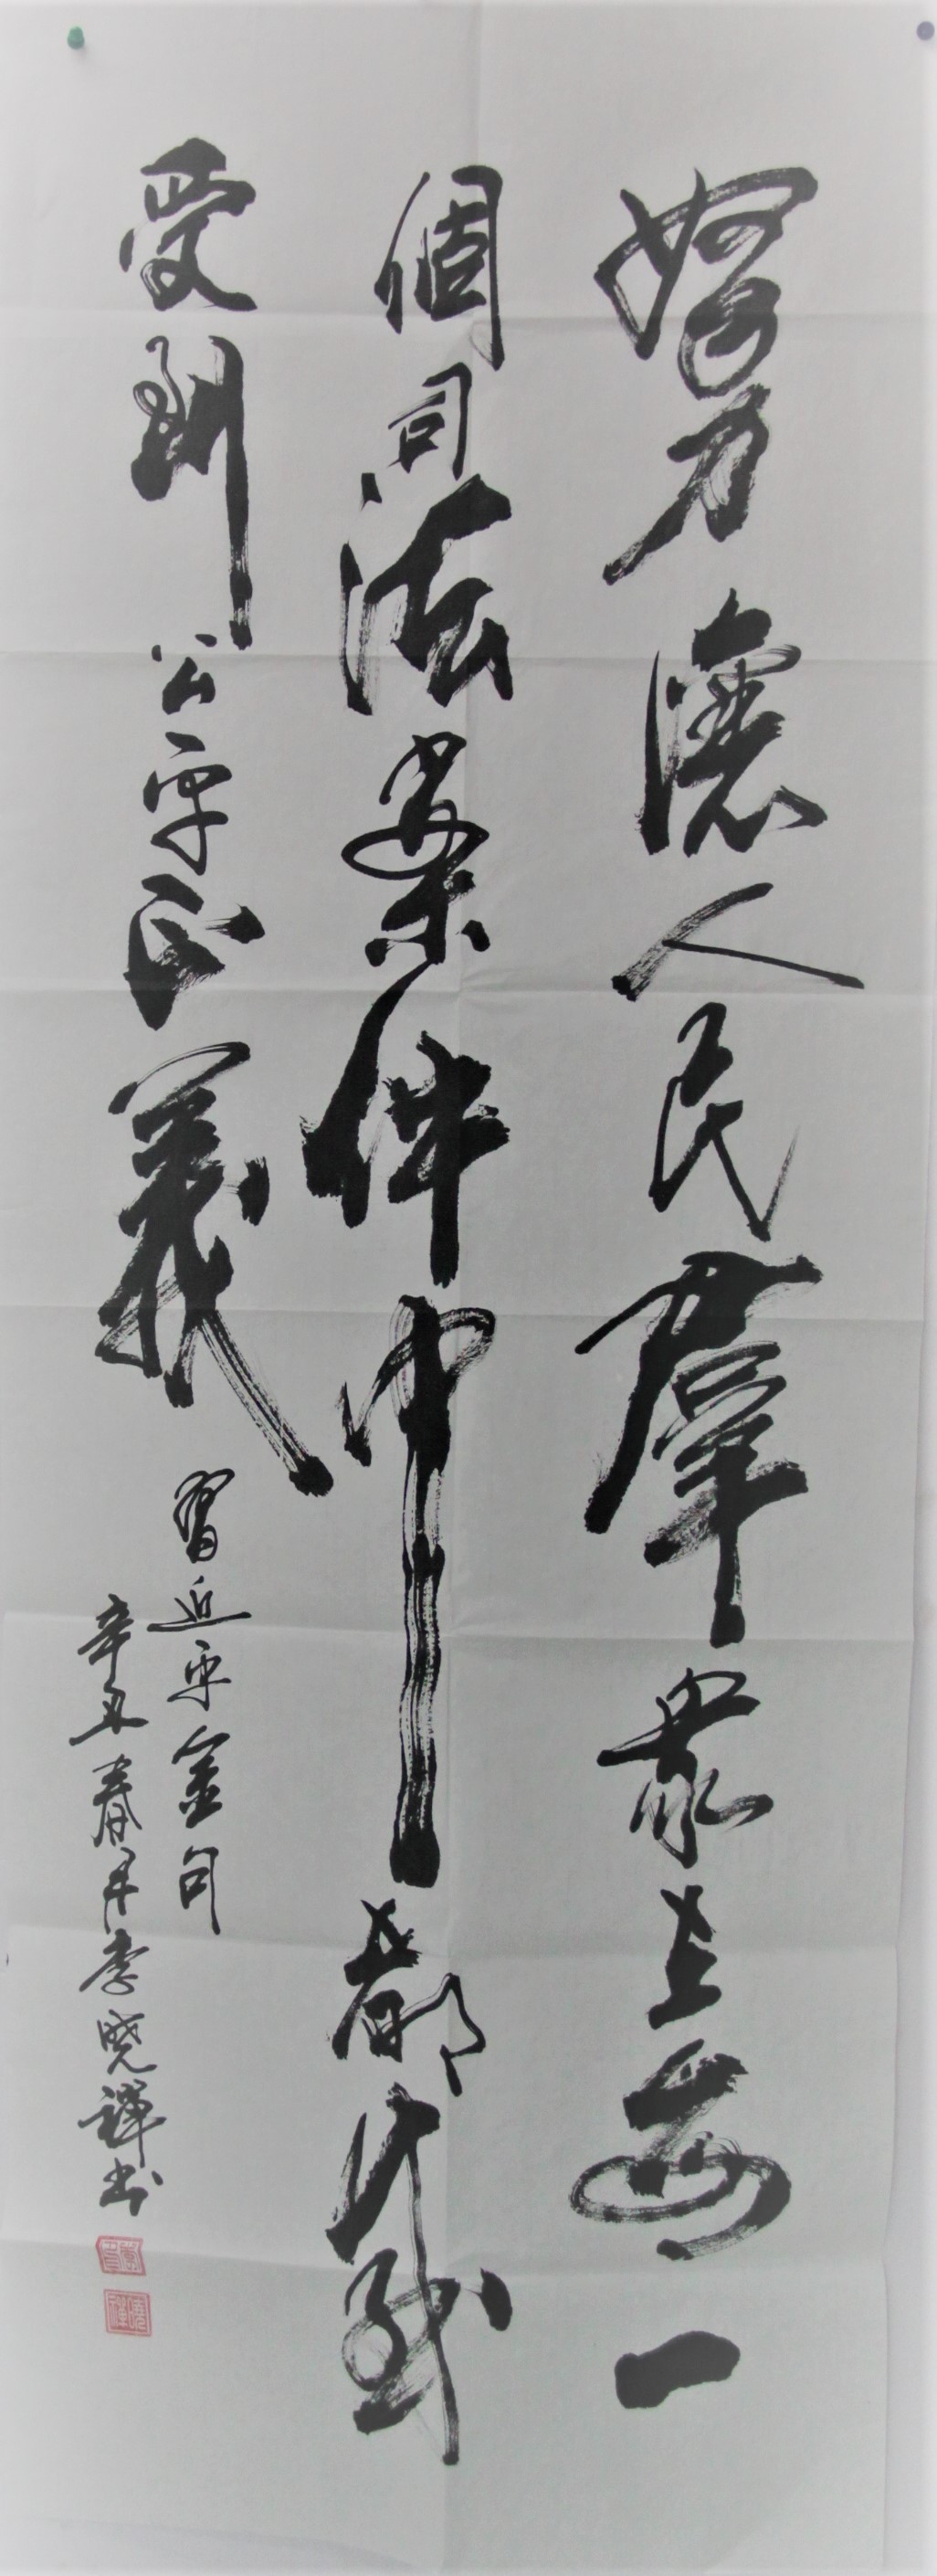 努力讓人民羣眾在每一
個司法案件中都感
受到公平正義
習近平金句
辛丑春李晓书